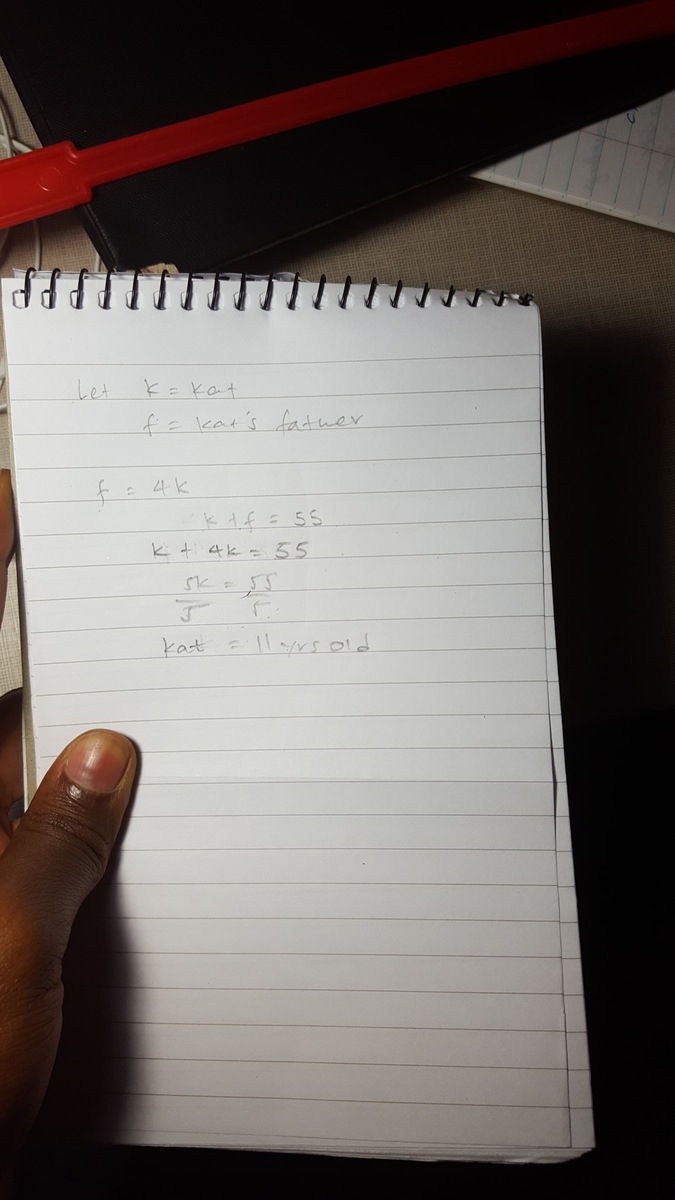 Let k = kat
f = kat's father
f = 4k
k + f = 55
k + 4k = 55
5k = 55
5 5
kat = 11 yrs old